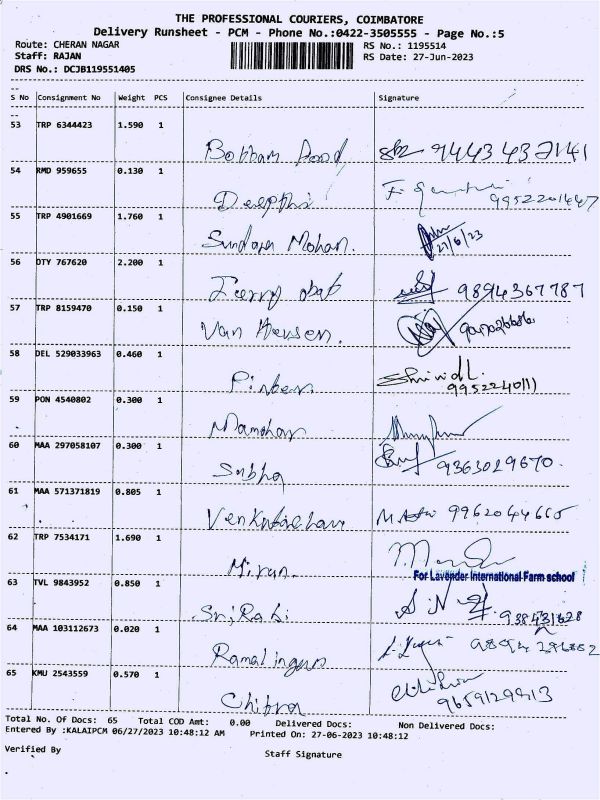 THE PROFESSIONAL COURIERS, COIMBATORE
Delivery Runsheet - PCM - Phone No.:0422-3505555 - Page No.:5
Route: CHERAN NAGAR RS No.: 1195514
Staff: RAJAN RS Date: 27-Jun-2023
DRS No.: DCJB119551405
S No Consignment No Weight PCS Consignee Details Signature
53 TRP 6344423 1.590 1
9443432141
54 RMD 959655 0.130 1
Deepthi 9952201447
55 TRP 4901669 1.760 1
Sundara Mohan. 27/6/23
56 DTY 767620 2.200 1
9894367787
57 TRP 8159470 0.150 1
Van Heusen.
58 DEL 529033963 0.460 1
59 PON 4540802 0.300 1
Manohar
60 MAA 297058107 0.300 1
Subha 9363029670.
61 MAA 571371819 0.805 1
Venkatachalam 9962044665
62 TRP 7534171 1.690 1
Mirun.
For Lavender International Farm school
63 TVL 9843952 0.850 1
64 MAA 103112673 0.020 1
Ramalingam
65 KMU 2543559 0.570 1
Chitra 9659129913
Total No. Of Docs: 65 Total COD Amt: 0.00 Delivered Docs: Non Delivered Docs:
Entered By :KALAIPCM 06/27/2023 10:48:12 AM Printed On: 27-06-2023 10:48:12
Verified By Staff Signature